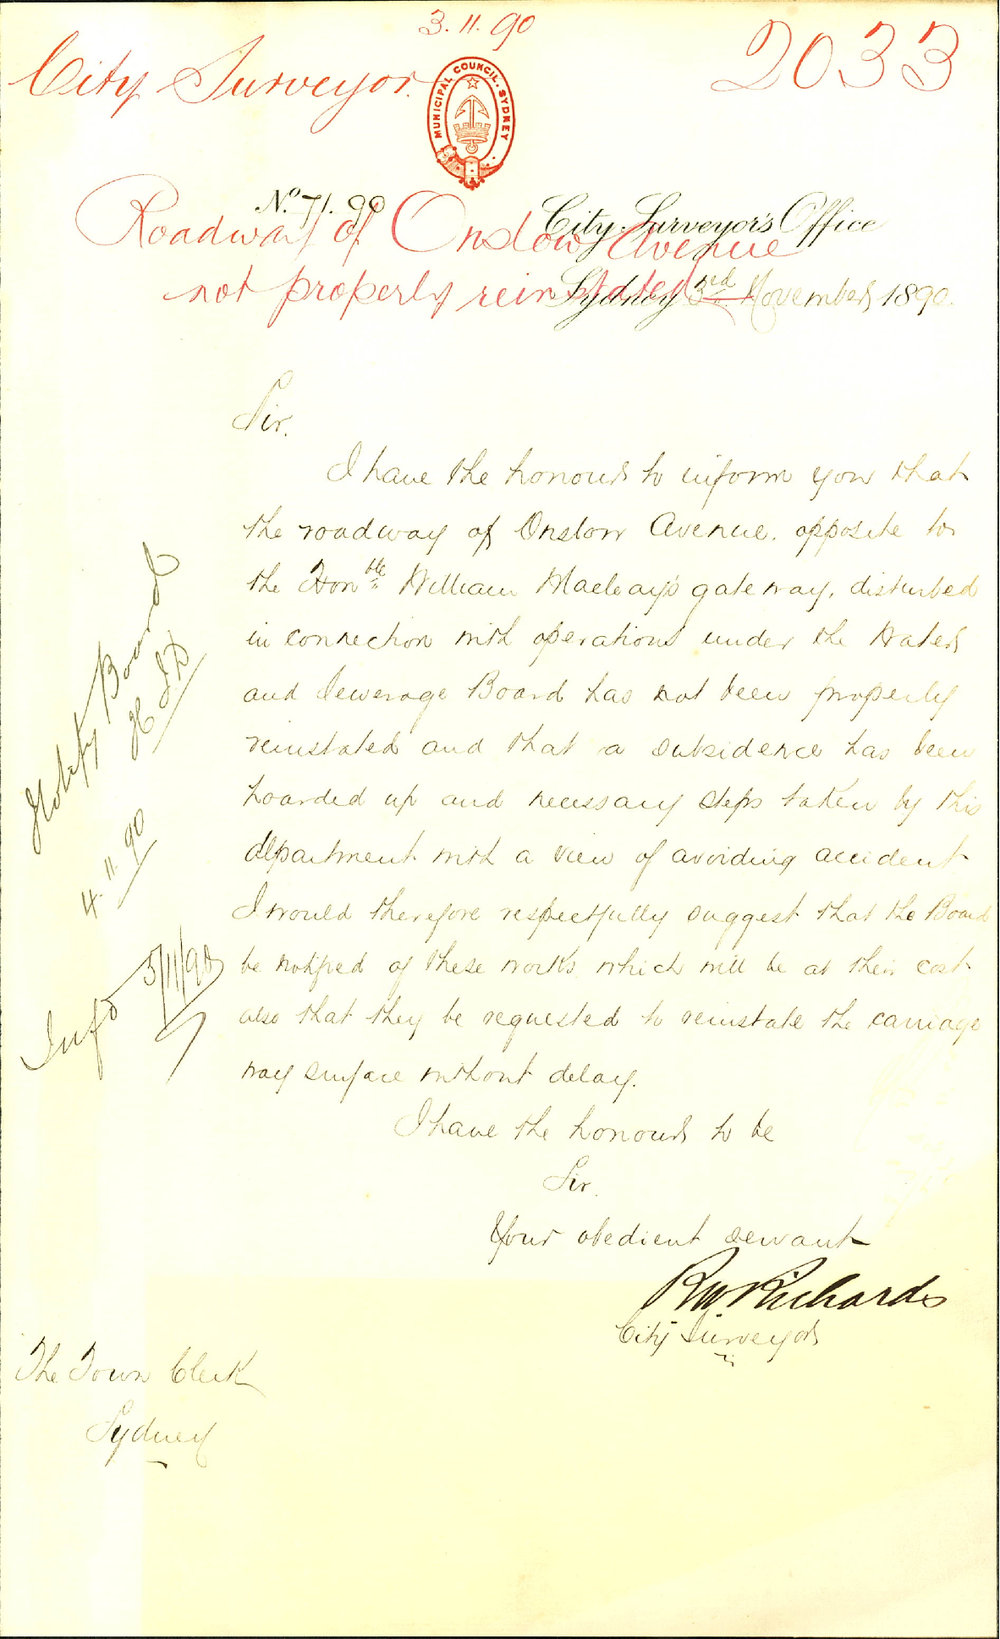 3.11.90
City Surveyor.
2033
MUNICIPAL COUNCIL. SYDNEY
No. 71.90
City Surveyor's Office
Roadway of Onslow Avenue
not properly reinstated
Sydney 3rd November 1890.
Sir.
I have the honour to inform you that
the roadway of Onslow Avenue. opposite to
the Honble William Macleay's gateway, disturbed
in connection with operations under the Water
and Sewerage Board has not been properly
reinstated and that a subsidence has been
hoarded up and necessary steps taken by this
department with a view of avoiding accident
I would therefore respectfully suggest that the Board
be notified of these works which will be at their cost
also that they be requested to reinstate the carriage
way surface without delay.
I have the honour to be
Sir.
Your obedient servant
RW Richards
City Surveyor
The Town Clerk
Sydney
Notify Board
4.11.90
Infd 5/11/90